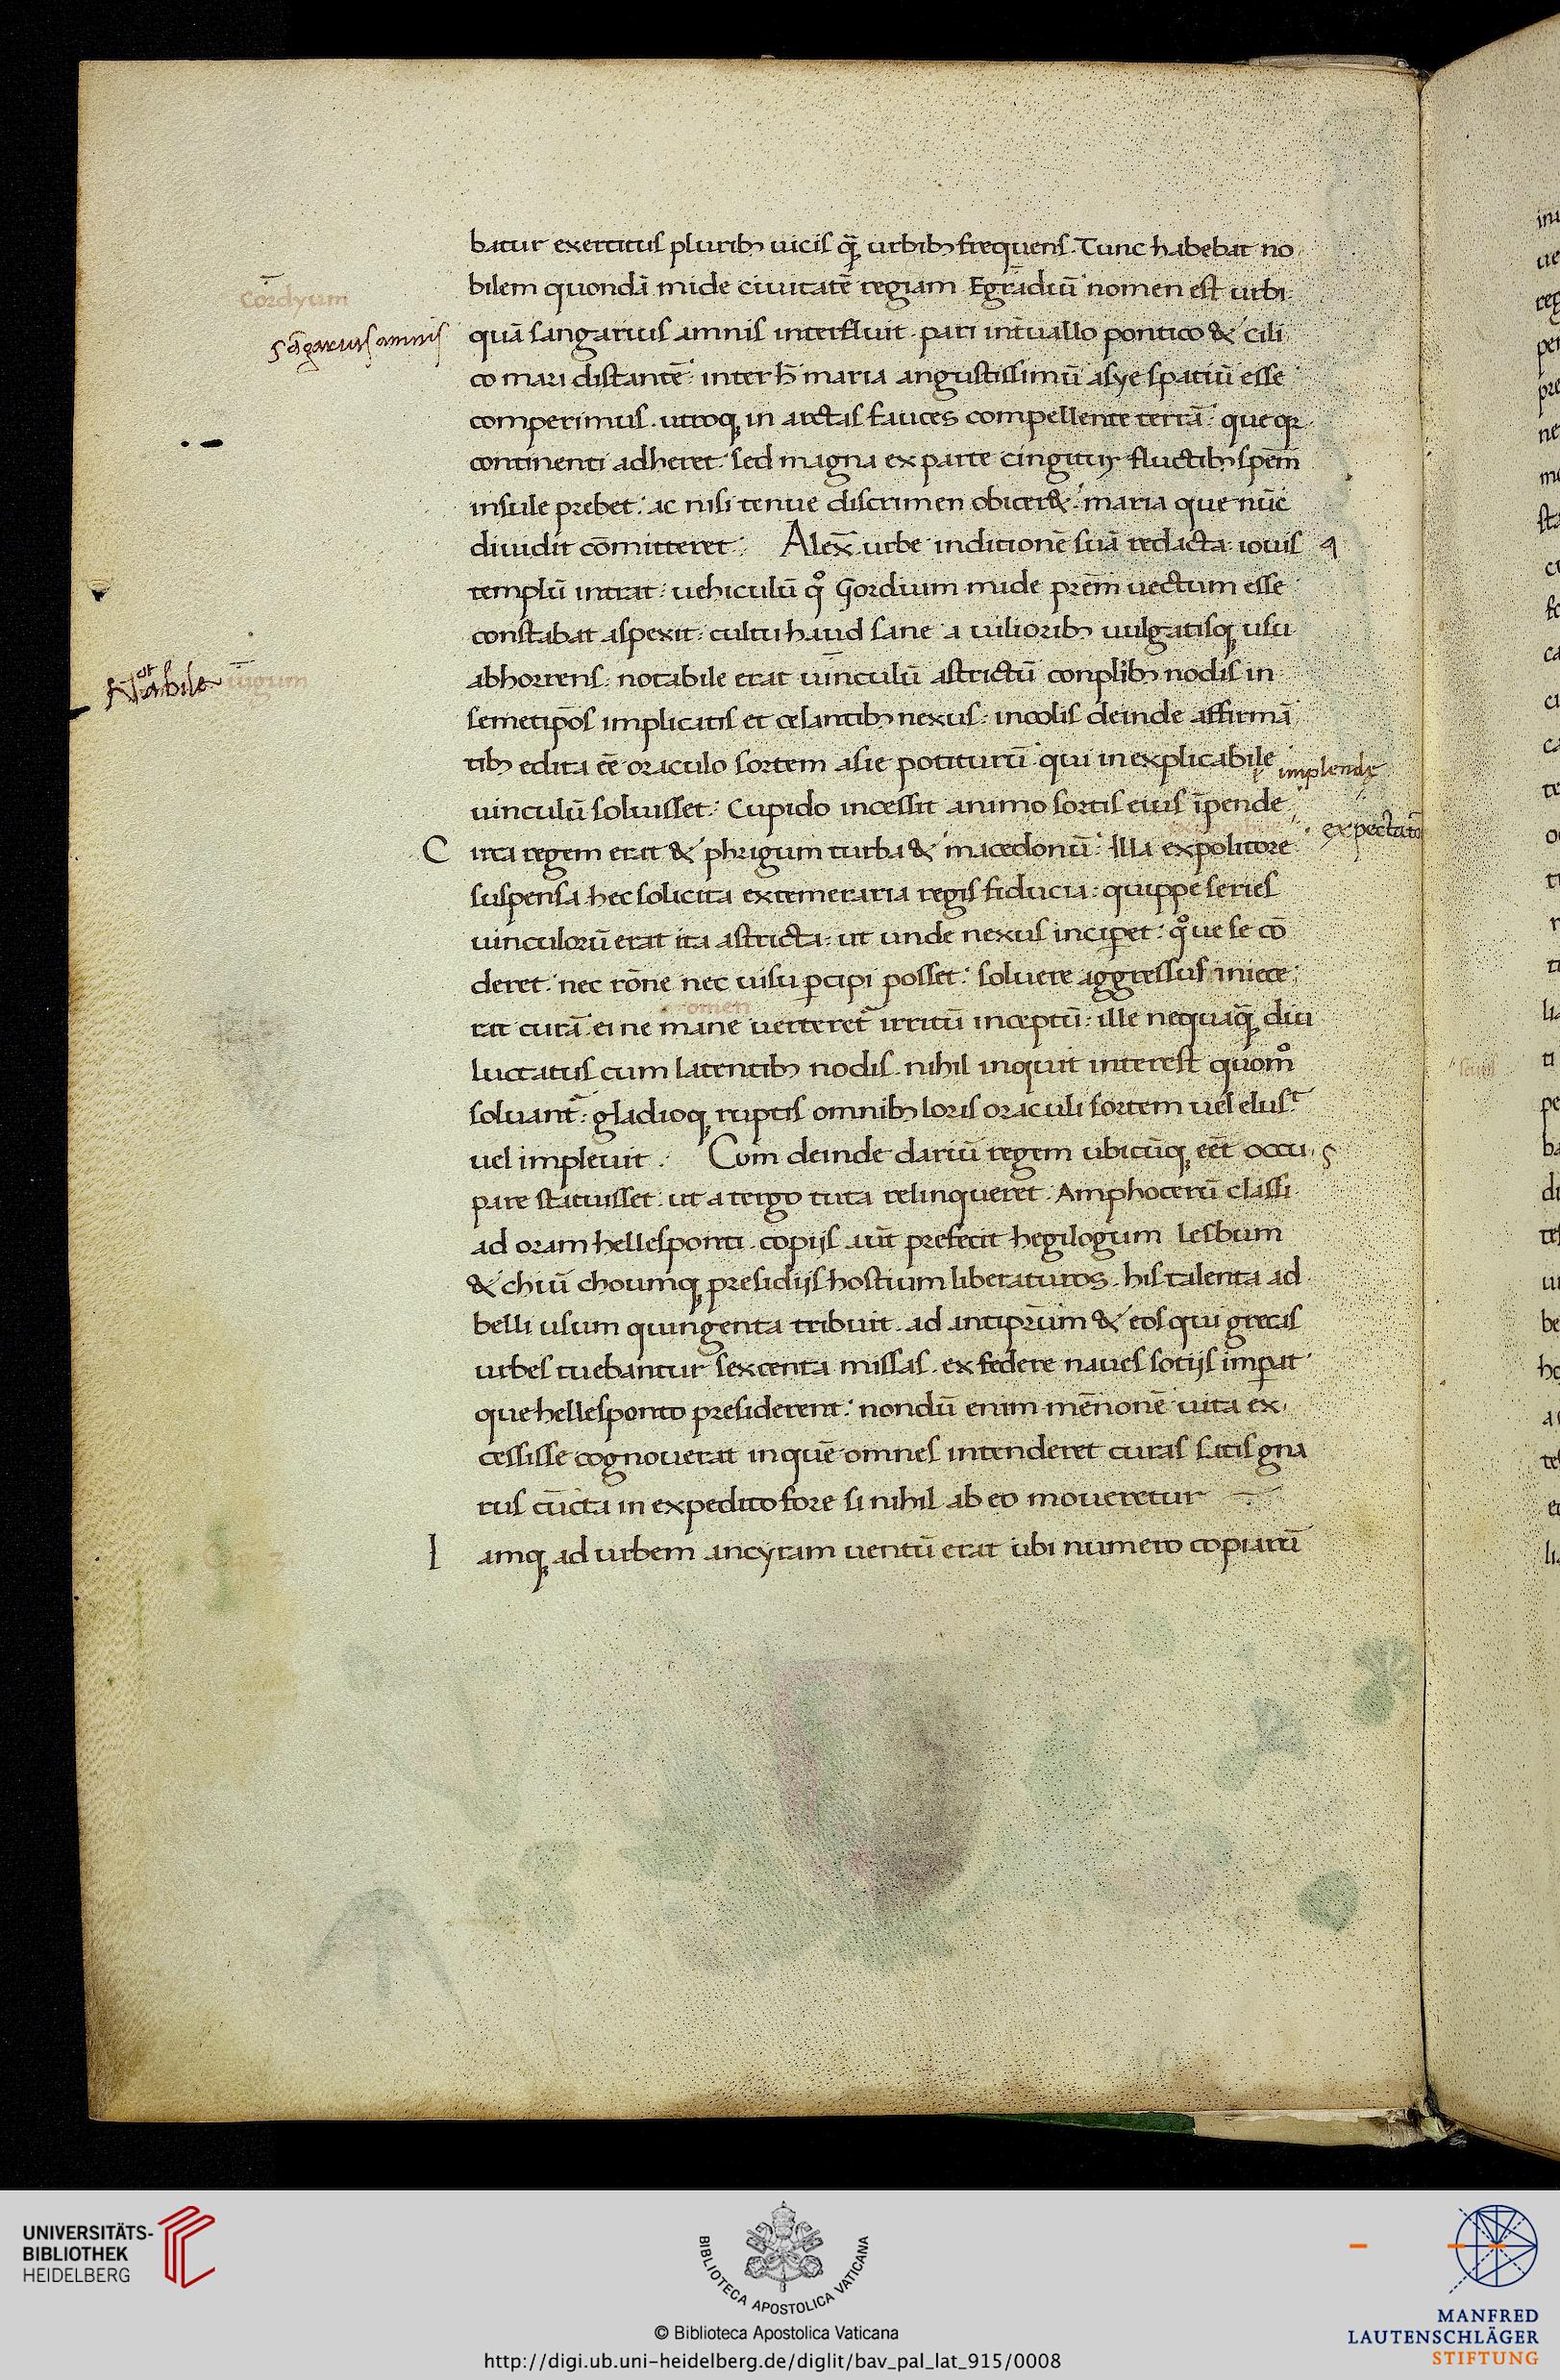 batur exercitus pluribꝫ uicis ꝗ̄ urbibꝫ frequens. Tunc habebat no
bilem quondā mide ciuitatē regiam Egradiū nomen est urbi
quā sangarius amnis interfluit pari int̄uallo pontico & cili
co mari distantē: inter h̄ maria angustissimū asye spatiū esse
comperimus. utroqꝫ in arctas fauces compellente terrā: que qꝛ
continenti adheret: sed magna ex parte cingitur fluctibꝫ spem̄
insule prebet: ac nisi tenue discrimen obicer&: maria que nūc
diuidit cōmitteret: Alex̄ urbe inditionē suā redacta: iouis
templū intrat: uehiculū qͦ Gordium mide prēm uectum esse
constabat aspexit: cultu haud sane a uilioribꝫ uulgatisqꝫ usu
abhorrens: notabile erat uinculū astrictū conplibꝫ nodis in
semetipōs implicatis et celantibꝫ nexus: incolis deinde affirmā
tibꝫ edita eē oraculo sortem asie potiturū qui inexplicabile
uinculū soluisset: Cupido incessit animo sortis eius īpende
C irca regem erat & phrigum turba & macedonū: Illa expolitore
suspensa hec solicita extemeraria regis fiducia: quippe series
uinculorū erat ita astricta: ut unde nexus inciperet: qͦue se cō
deret: nec rōne nec uisu ꝑcipi posset: soluere aggressus iniece
rat curā ei ne mane uerteret̄ irritū inceptū: ille nequaꝗ̄ diu
luctatus cum latentibꝫ nodis nihil inquit interest quomͦ
soluant̄: gladioqꝫ ruptis omnibꝫ loris oraculi sortem uel elusᵗ
uel impleuit. Cum deinde dariū regem ubicūqꝫ eēt occu
pare statuisset: ut a tergo tuta relinqueret. Amphoterū classi
ad oram hellesponti. copijs aūt prefecit hegilogum lesbum
& chiū choumqꝫ presidijs hostium liberaturos. his talenta ad
belli usum quingenta tribuit. ad antiprūm & eos qui grecas
urbes tuebantur sexcenta missas. ex federe naues sotijs imꝑat
que hellesponto presiderent: nondū enim mēnonē uita ex
cessisse cognouerat in quē omnes intenderet curas satis gna
rus cūcta in expedito fore si nihil ab eo moueretur
I amqꝫ ad urbem ancyram uentū erat ubi numero copiarū
Cordyum
sāgarius amnis
Notabile iugum
implendę
expectatōe
omen
UNIVERSITÄTS-
BIBLIOTHEK
HEIDELBERG
BIBLIOTECA APOSTOLICA VATICANA
© Biblioteca Apostolica Vaticana
http://digi.ub.uni-heidelberg.de/diglit/bav_pal_lat_915/0008
MANFRED
LAUTENSCHLÄGER
STIFTUNG